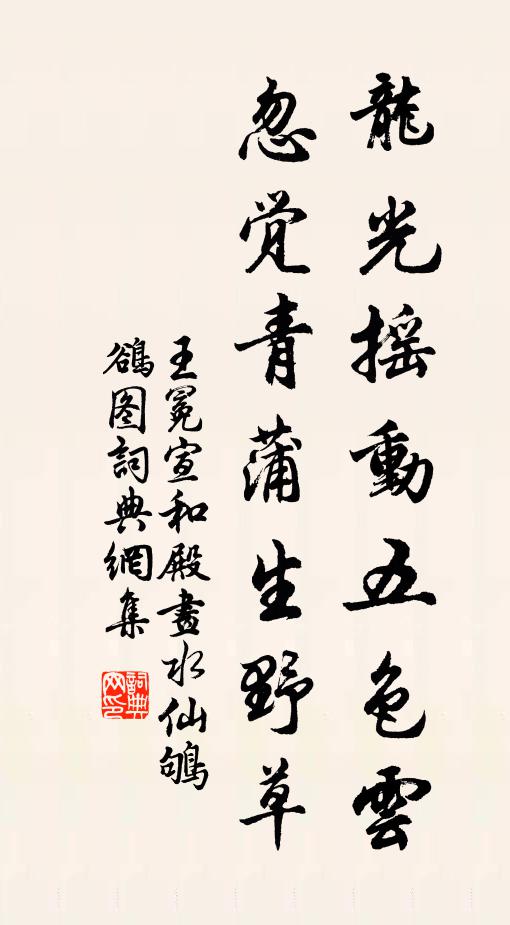 龍光摇動五色雲
忽觉青蒲生野草
王冕宣和殿畫水仙鸲
鵒图詞典網集
詞典网印